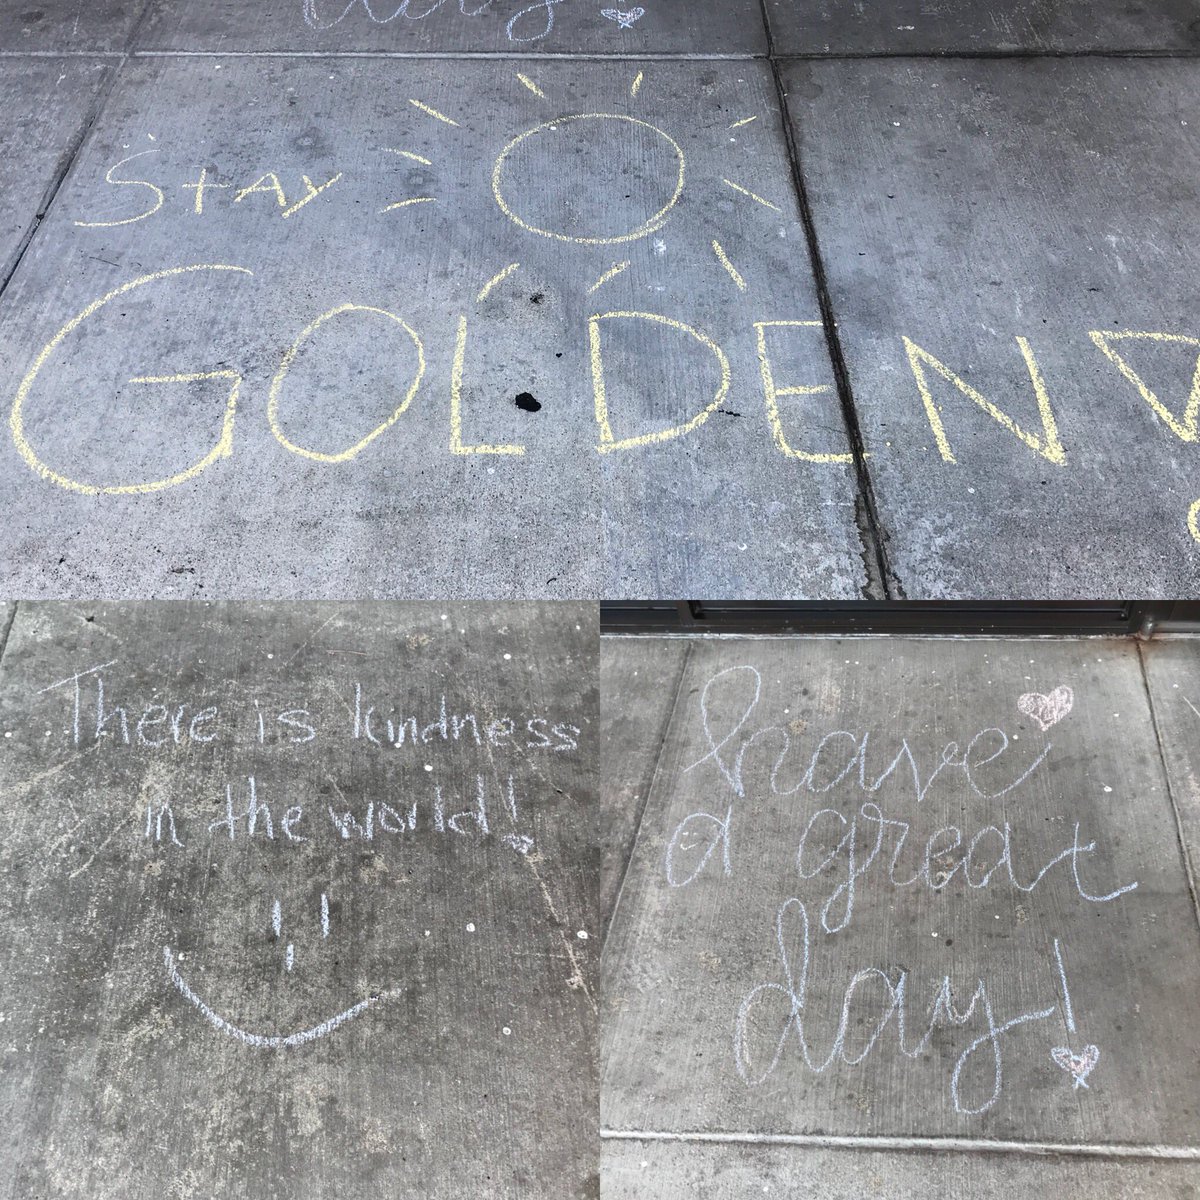 day!
Stay
GOLDEN!
There is kindness
in the world!
have
a great
day!